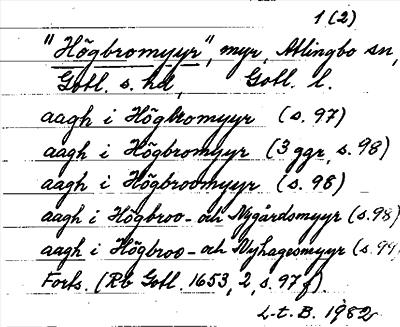 1 (2)
"Högbromyyr", myr, Atlingbo sn,
Gotl. s. hd, Gotl. l.
aagh i Högbromyyr (s. 97)
aagh i Högbromyyr (3 ggr, s. 98)
aagh i Högbroomyyr (s. 98)
aagh i Högbroo- och Nygårdsmyyr (s. 98)
aagh i Högbroo- och Nyhagesmyyr (s. 99)
Forts. (Rb Gotl. 1653, 2, s. 97 f.)
L-t. B. 1982